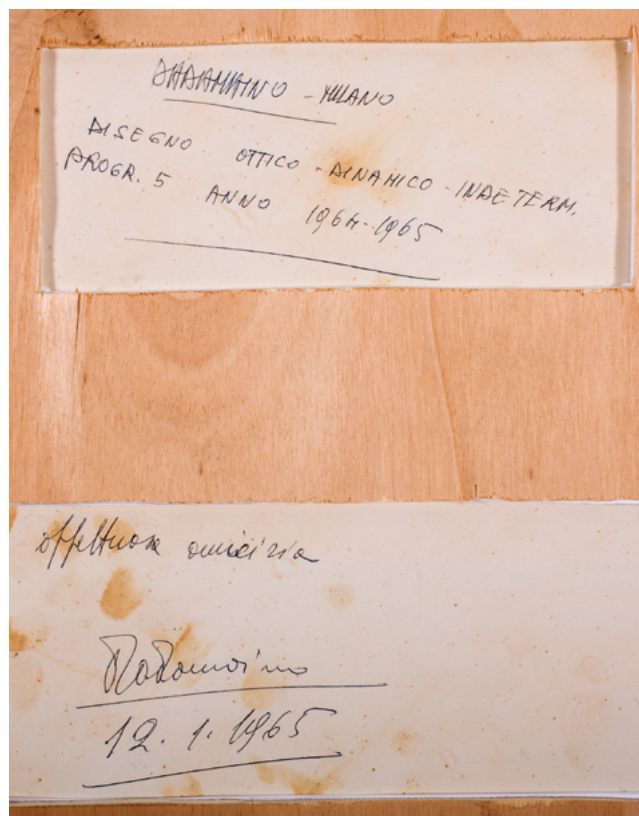 DADAMAINO - MILANO
DISEGNO OTTICO - DINAMICO - INDETERM.
PROGR. 5 ANNO 1964-1965
affettuosa amicizia
Dadamaino
12.1.1965